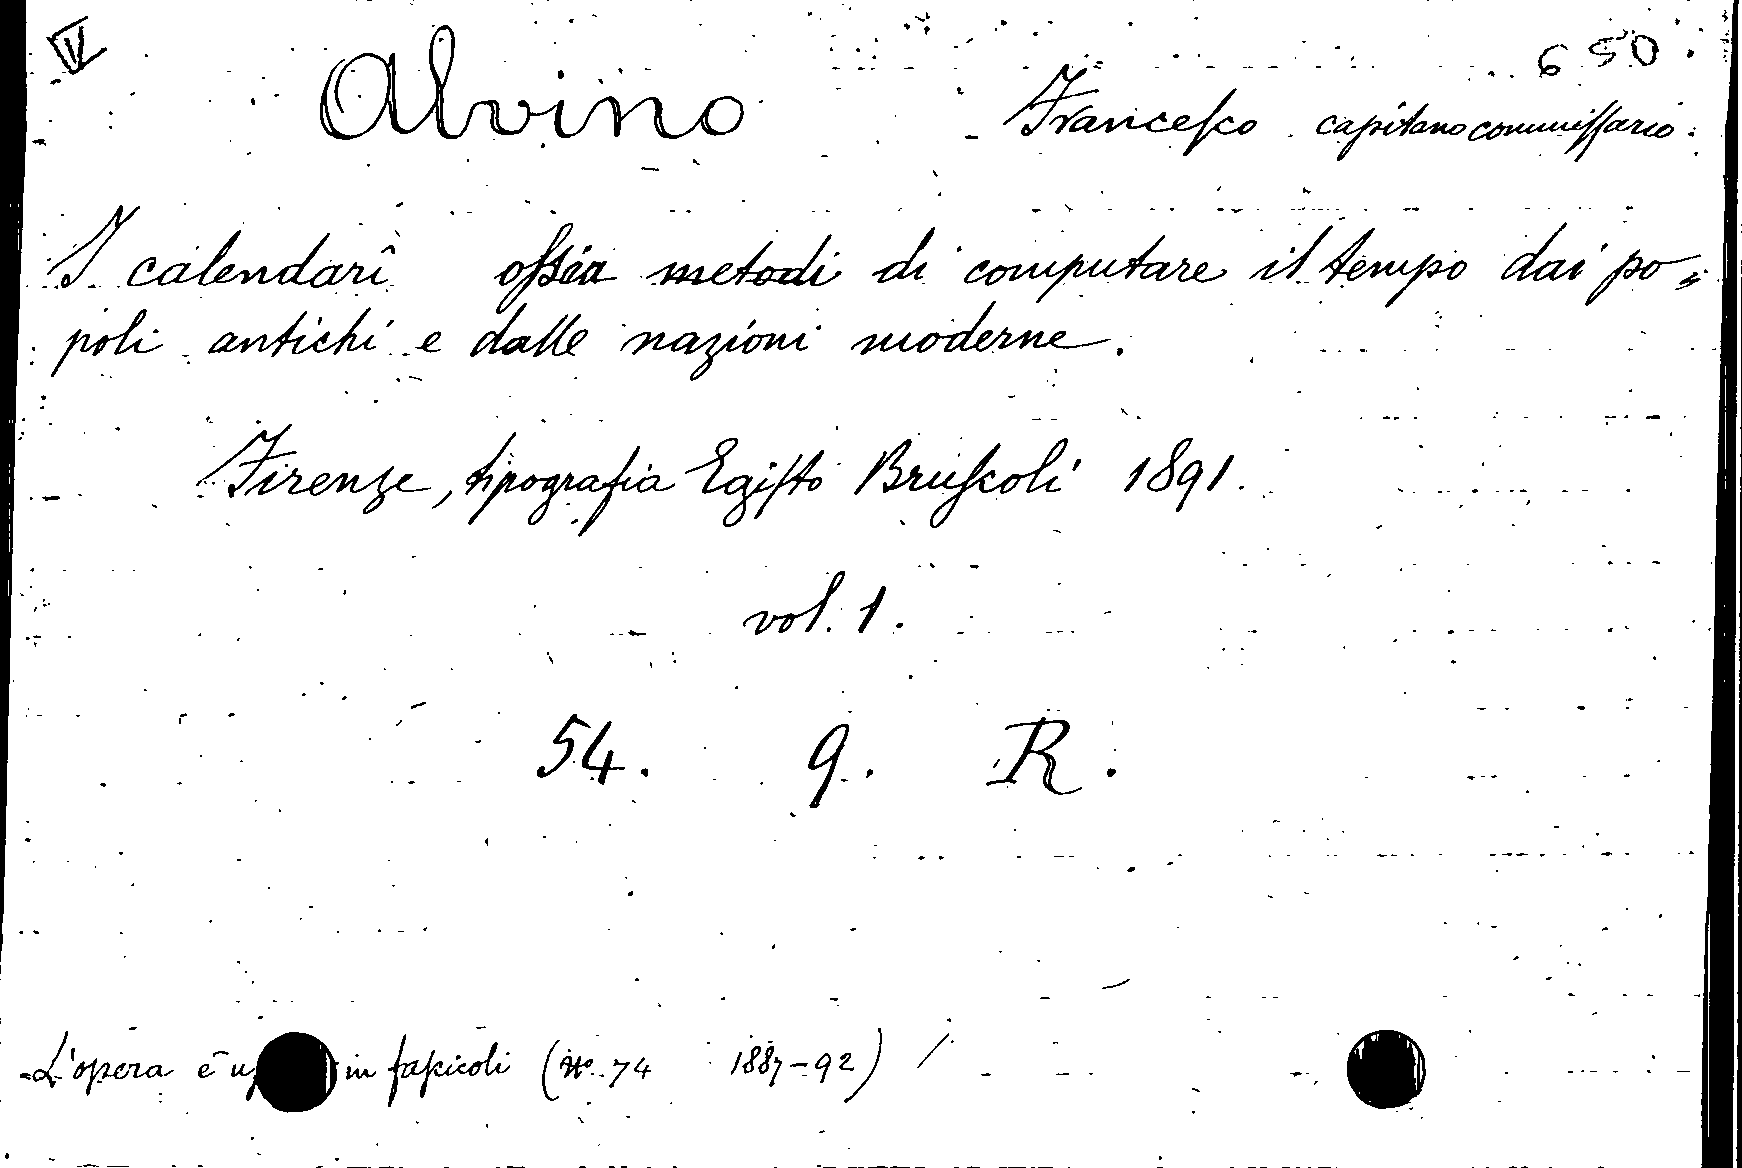 V 650
Alvino Francesco capitano commissario.
I calendarî ossia metodi di computare il tempo dai po=
poli antichi e dalle nazioni moderne.
Firenze, tipografia Egisto Bruscoli 1891.
vol. 1.
54. 9. R.
L'opera è in fascicoli (N° 74 1887-92)